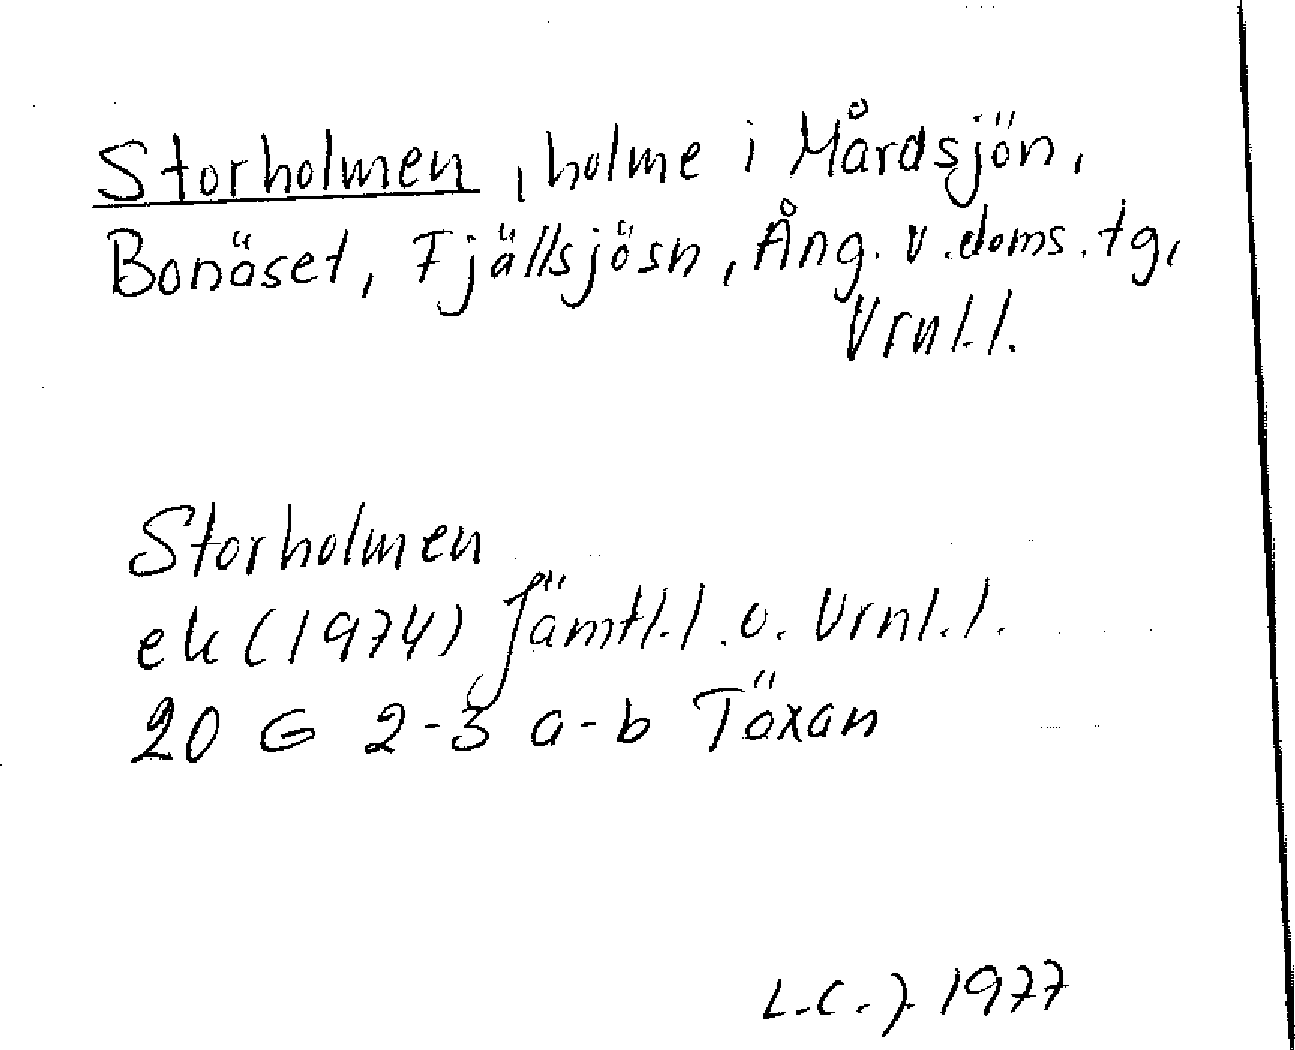 Storholmen, holme i Mårdsjön,
Bonäset, Fjällsjösn, Ång. v. doms. tg,
Vrnl. l.
Storholmen
ek (1974) Jämtl. l. o. Vrnl. l.
20 G 2-3 a-b Täxan
L.C.J. 1977